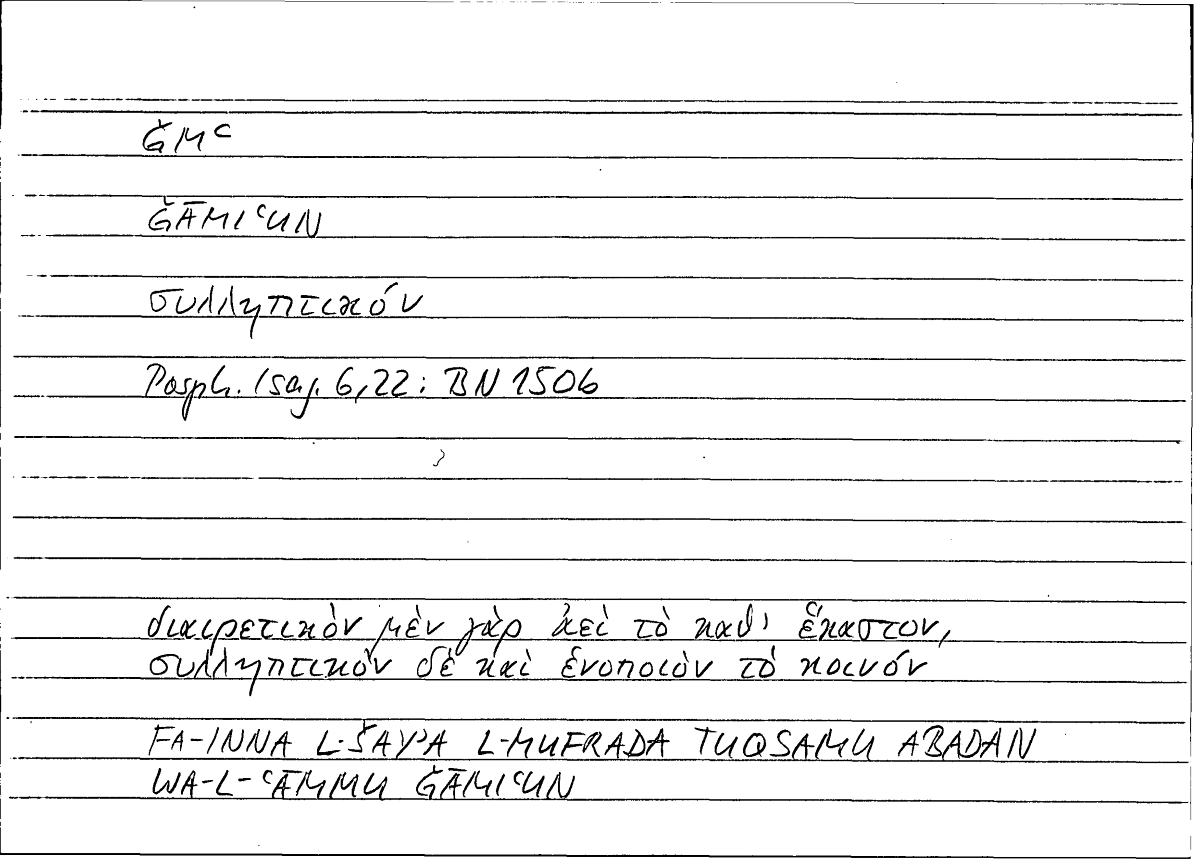 ǦMʿ
ǦĀMIʿUN
συλληπτικόν
Porph. Isag. 6,22: BN 1506
διαιρετικὸν μὲν γὰρ ἀεὶ τὸ καθ' ἕκαστον,
συλληπτικὸν δὲ καὶ ἑνοποιὸν τὸ κοινόν
FA-INNA L-ŠAYʾA L-MUFRADA TUQSAMU ABADAN
WA-L-ʿĀMMU ǦĀMIʿUN